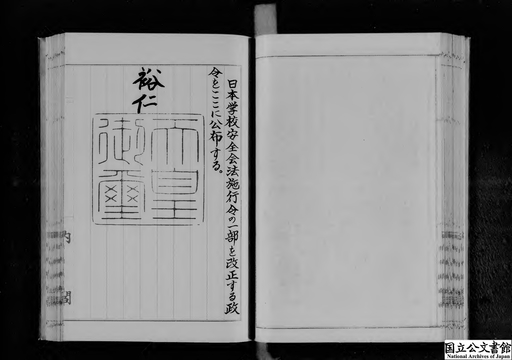 日本学校安全会法施行令の一部を改正する政
令をここに公布する。
裕仁
天皇
御璽
内閣
国立公文書館
National Archives of Japan